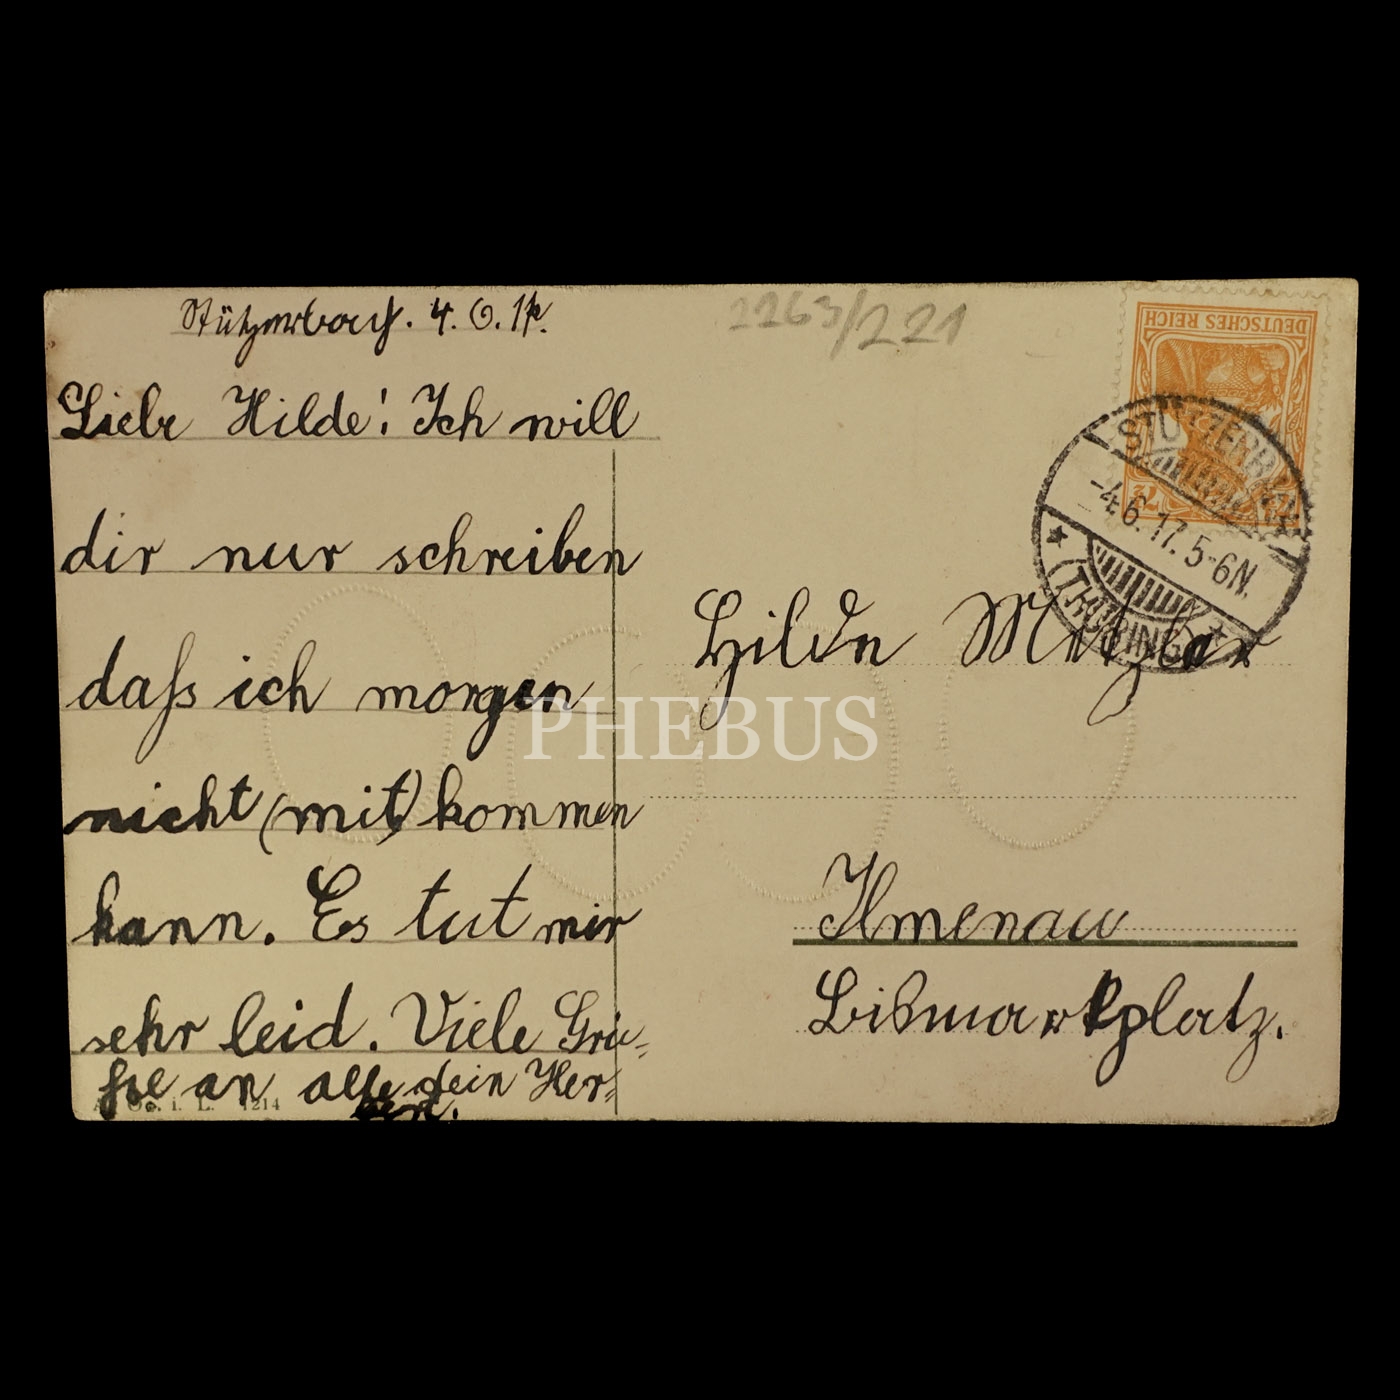 Stützerbach. 4. 6. 17.
2263/221
Liebe Hilde! Ich will
dir nur schreiben
daß ich morgen
nicht (mit) kommen
kann. Es tut mir
sehr leid. Viele Grü-
ße an alle dein Her-
bert.
A. G. i. L. 1214
DEUTSCHES REICH
7½
STÜTZERBACH
-4.6.17.5-6N.
(THÜRING.)
Hilde Metzler
Ilmenau
Bismarkplatz.
PHEBUS